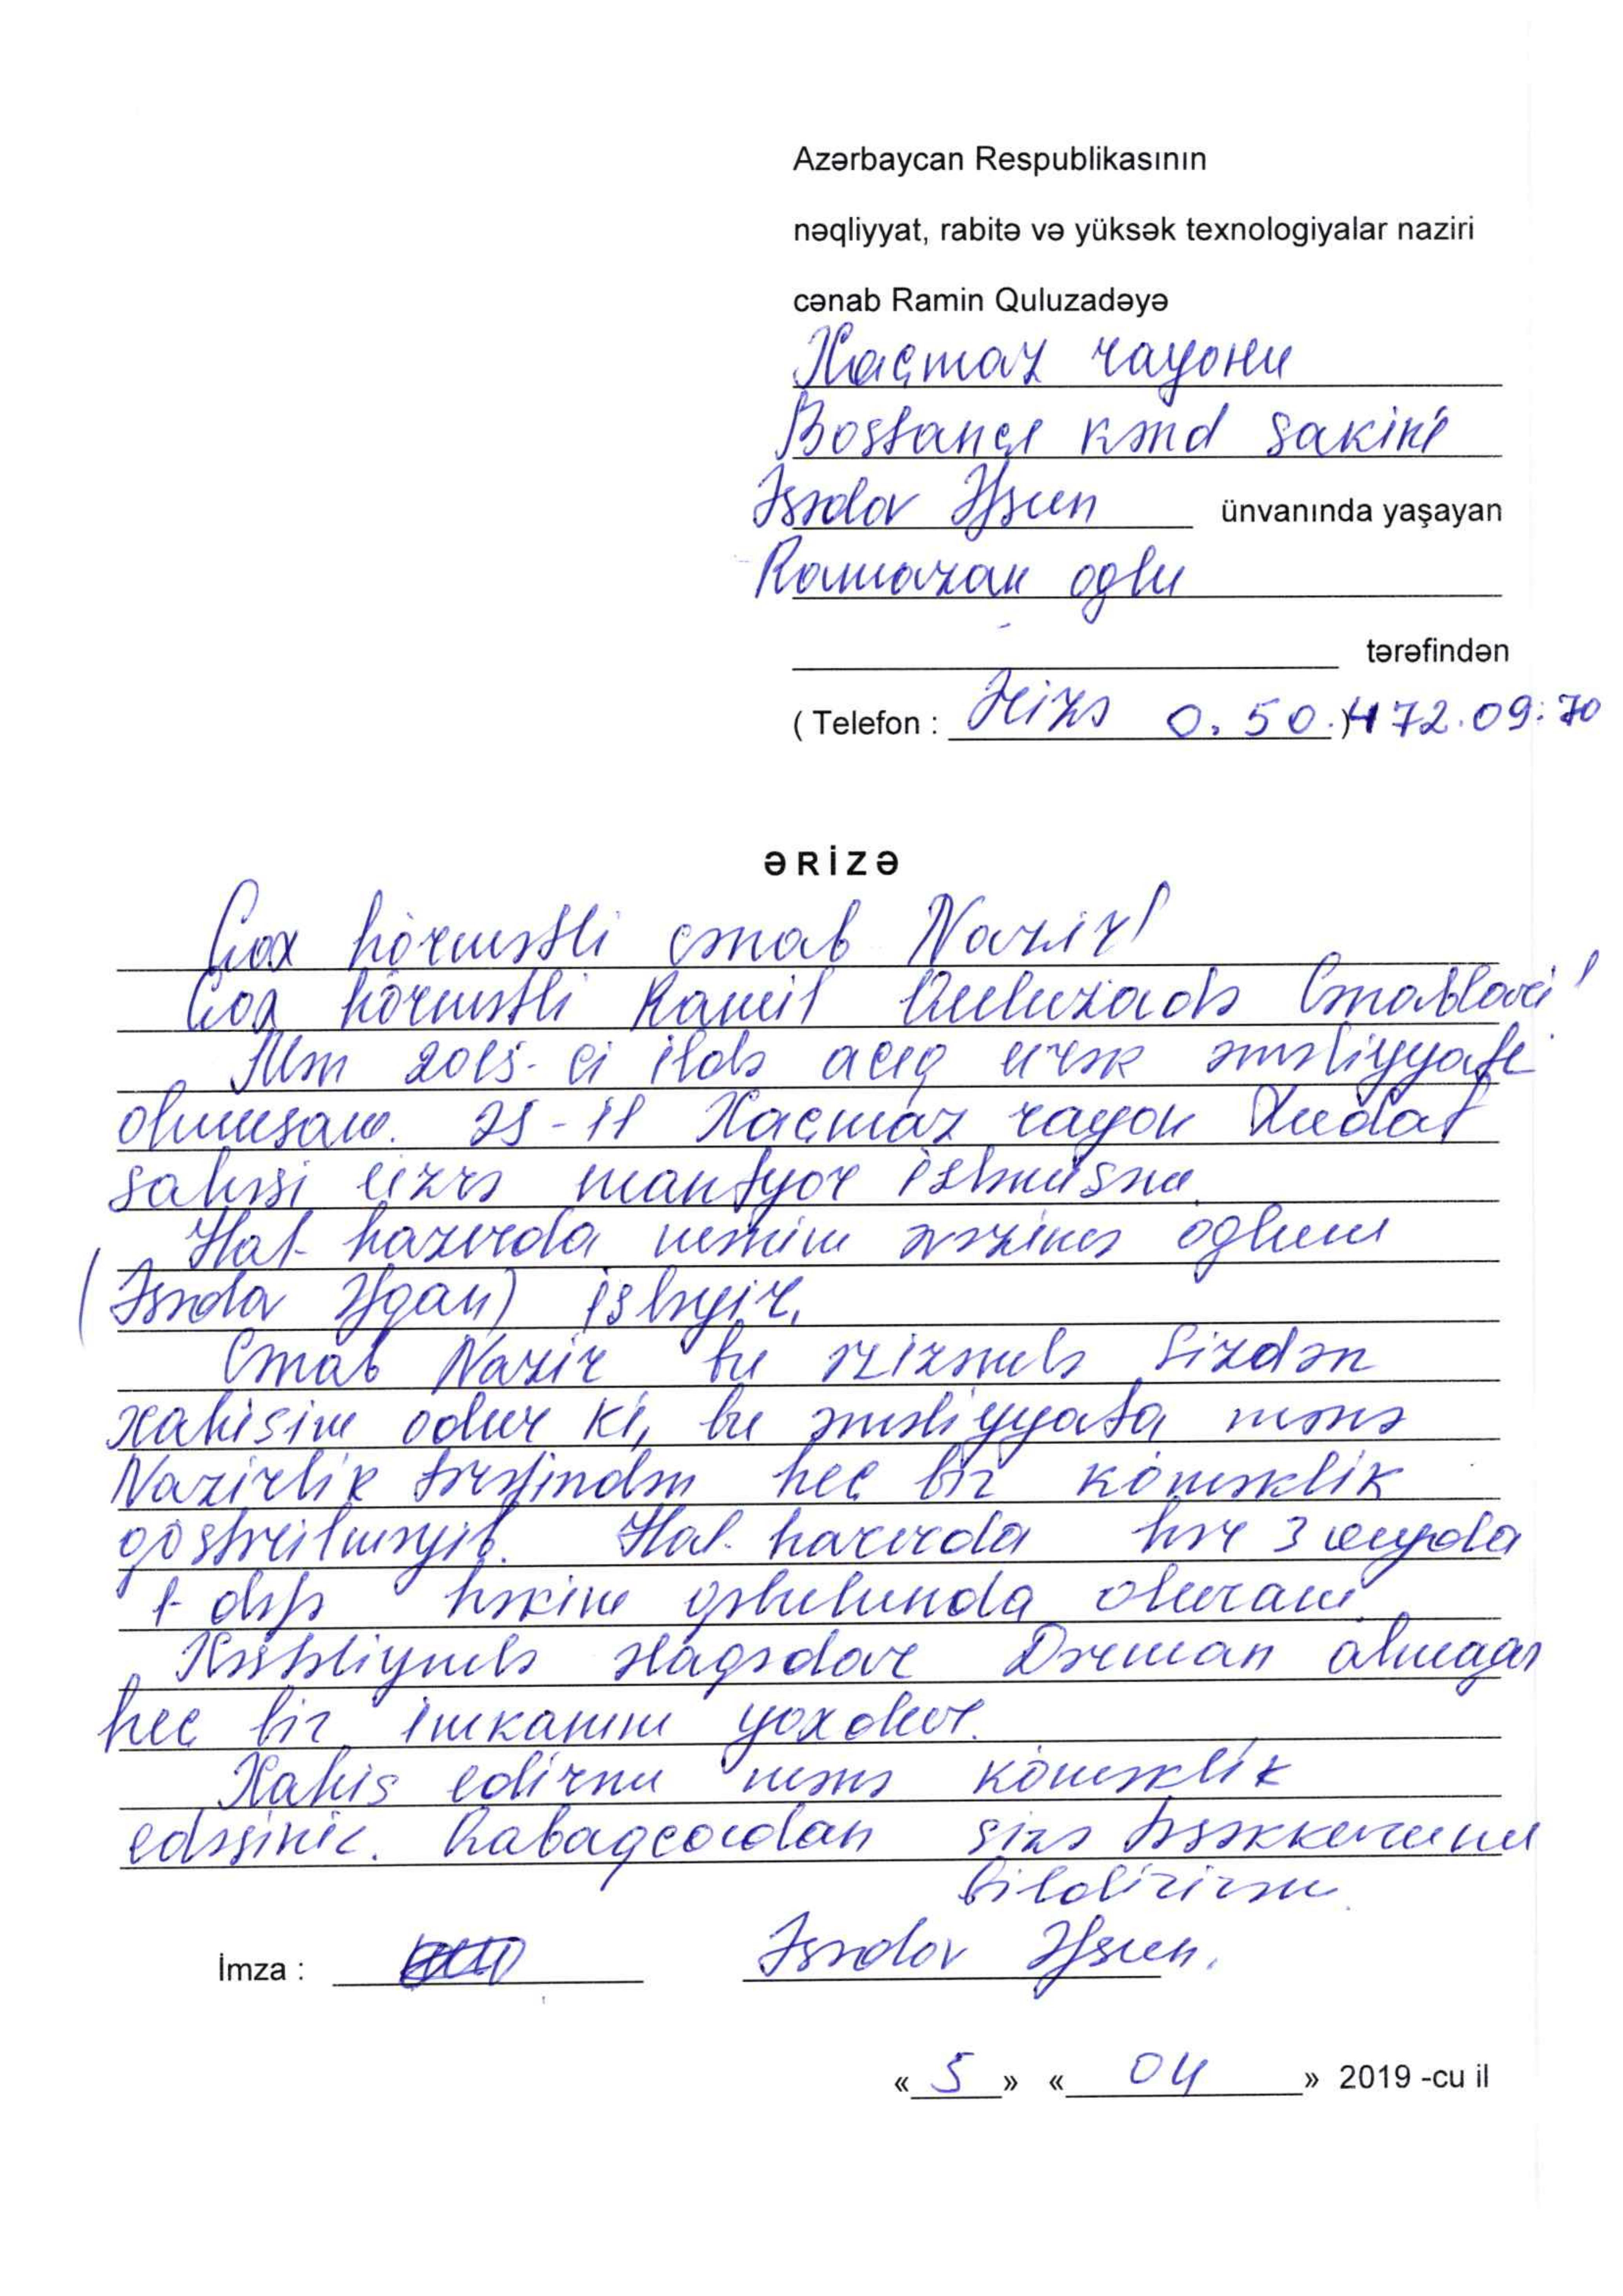 Azərbaycan Respublikasının
nəqliyyat, rabitə və yüksək texnologiyalar naziri
cənab Ramin Quluzadəyə
Xaçmaz rayonu
Bostançı kənd sakini
Əsədov Əfsun ünvanında yaşayan
Ramazan oğlu
tərəfindən
( Telefon : 0. 50.)472.09.70
ƏRİZƏ
Çox hörmətli cənab Nazir!
Çox hörmətli Ramil Quluzadə Cənabları!
Mən 2015-ci ildə açıq ürək əməliyyatı
olunmuşam. Xaçmaz rayon Xudat
sahəsi üzrə mantyor işləmişəm.
Hal-hazırda mənim əvəzimə oğlum
(Əsədov) işləyir.
Cənab Nazir bu ərizəmlə Sizdən
xahişim odur ki, bu əməliyyata mənə
Nazirlik tərəfindən heç bir köməklik
göstərilməyib. Hal-hazırda hər 3 ayda
1 dəfə həkim qəbulunda oluram.
Xəstəliyimlə əlaqədar Dərman almağa
heç bir imkanım yoxdur.
Xahiş edirəm mənə köməklik
edəsiniz. Qabaqcadan sizə təşəkkürümü
bildirirəm.
İmza : Əsədov Əfsun.
« 5 » « 04 » 2019 -cu il